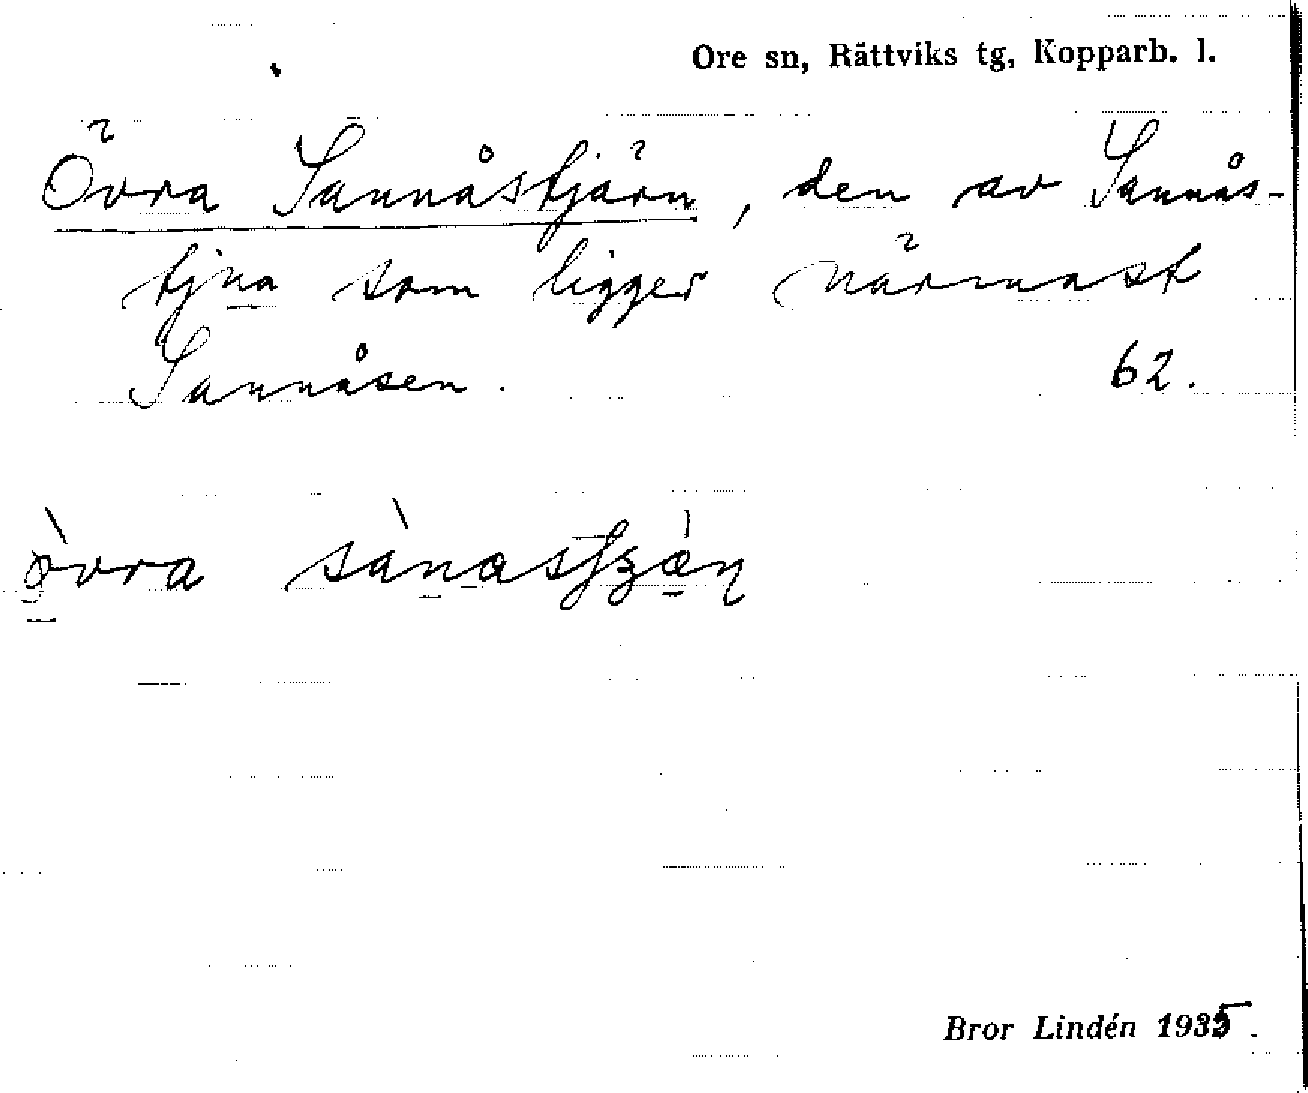 Ore sn, Rättviks tg, Kopparb. l.
Övra Sannåstjärn, den av Sannås-
tjna som ligger närmast
Sannåsen. 62.
övra
Bror Lindén 1935.